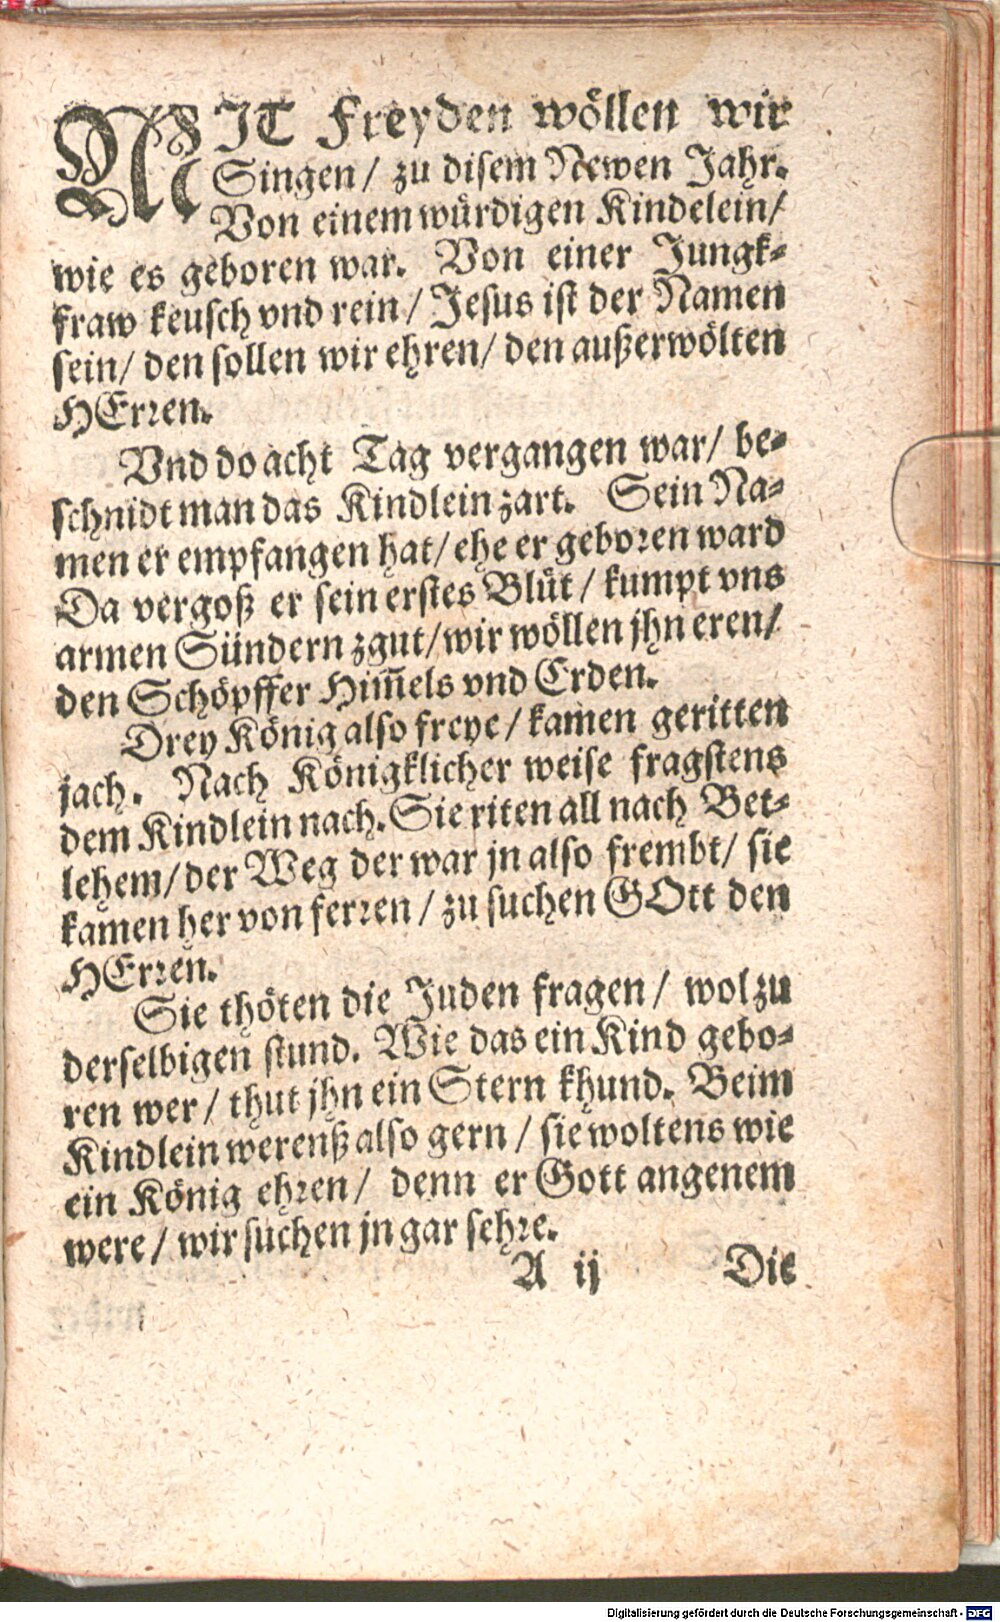 MIT Freyden wöllen wir
Singen / zu disem Newen Jahr.
Von einem würdigen Kindelein /
wie es geboren war. Von einer Jungk-
fraw keusch vnd rein / Jesus ist der Namen
sein / den sollen wir ehren / den außerwölten
HErren.
Vnd do acht Tag vergangen war / be-
schnidt man das Kindlein zart. Sein Na-
men er empfangen hat / ehe er geboren ward
Da vergoß er sein erstes Blüt / kumpt vns
armen Sündern zgut / wir wöllen jhn eren /
den Schöpffer Him̃els vnd Erden.
Drey König also freye / kamen geritten
jach. Nach Königklicher weise fragstens
dem Kindlein nach. Sie riten all nach Bet-
lehem / der Weg der war jn also frembt / sie
kamen her von ferren / zu suchen GOtt den
HErren.
Sie thöten die Juden fragen / wol zu
derselbigen stund. Wie das ein Kind gebo-
ren wer / thut jhn ein Stern khund. Beim
Kindlein werenß also gern / sie woltens wie
ein König ehren / denn er Gott angenem
were / wir suchen jn gar sehre.
A ij Die
Digitalisierung gefördert durch die Deutsche Forschungsgemeinschaft - DFG